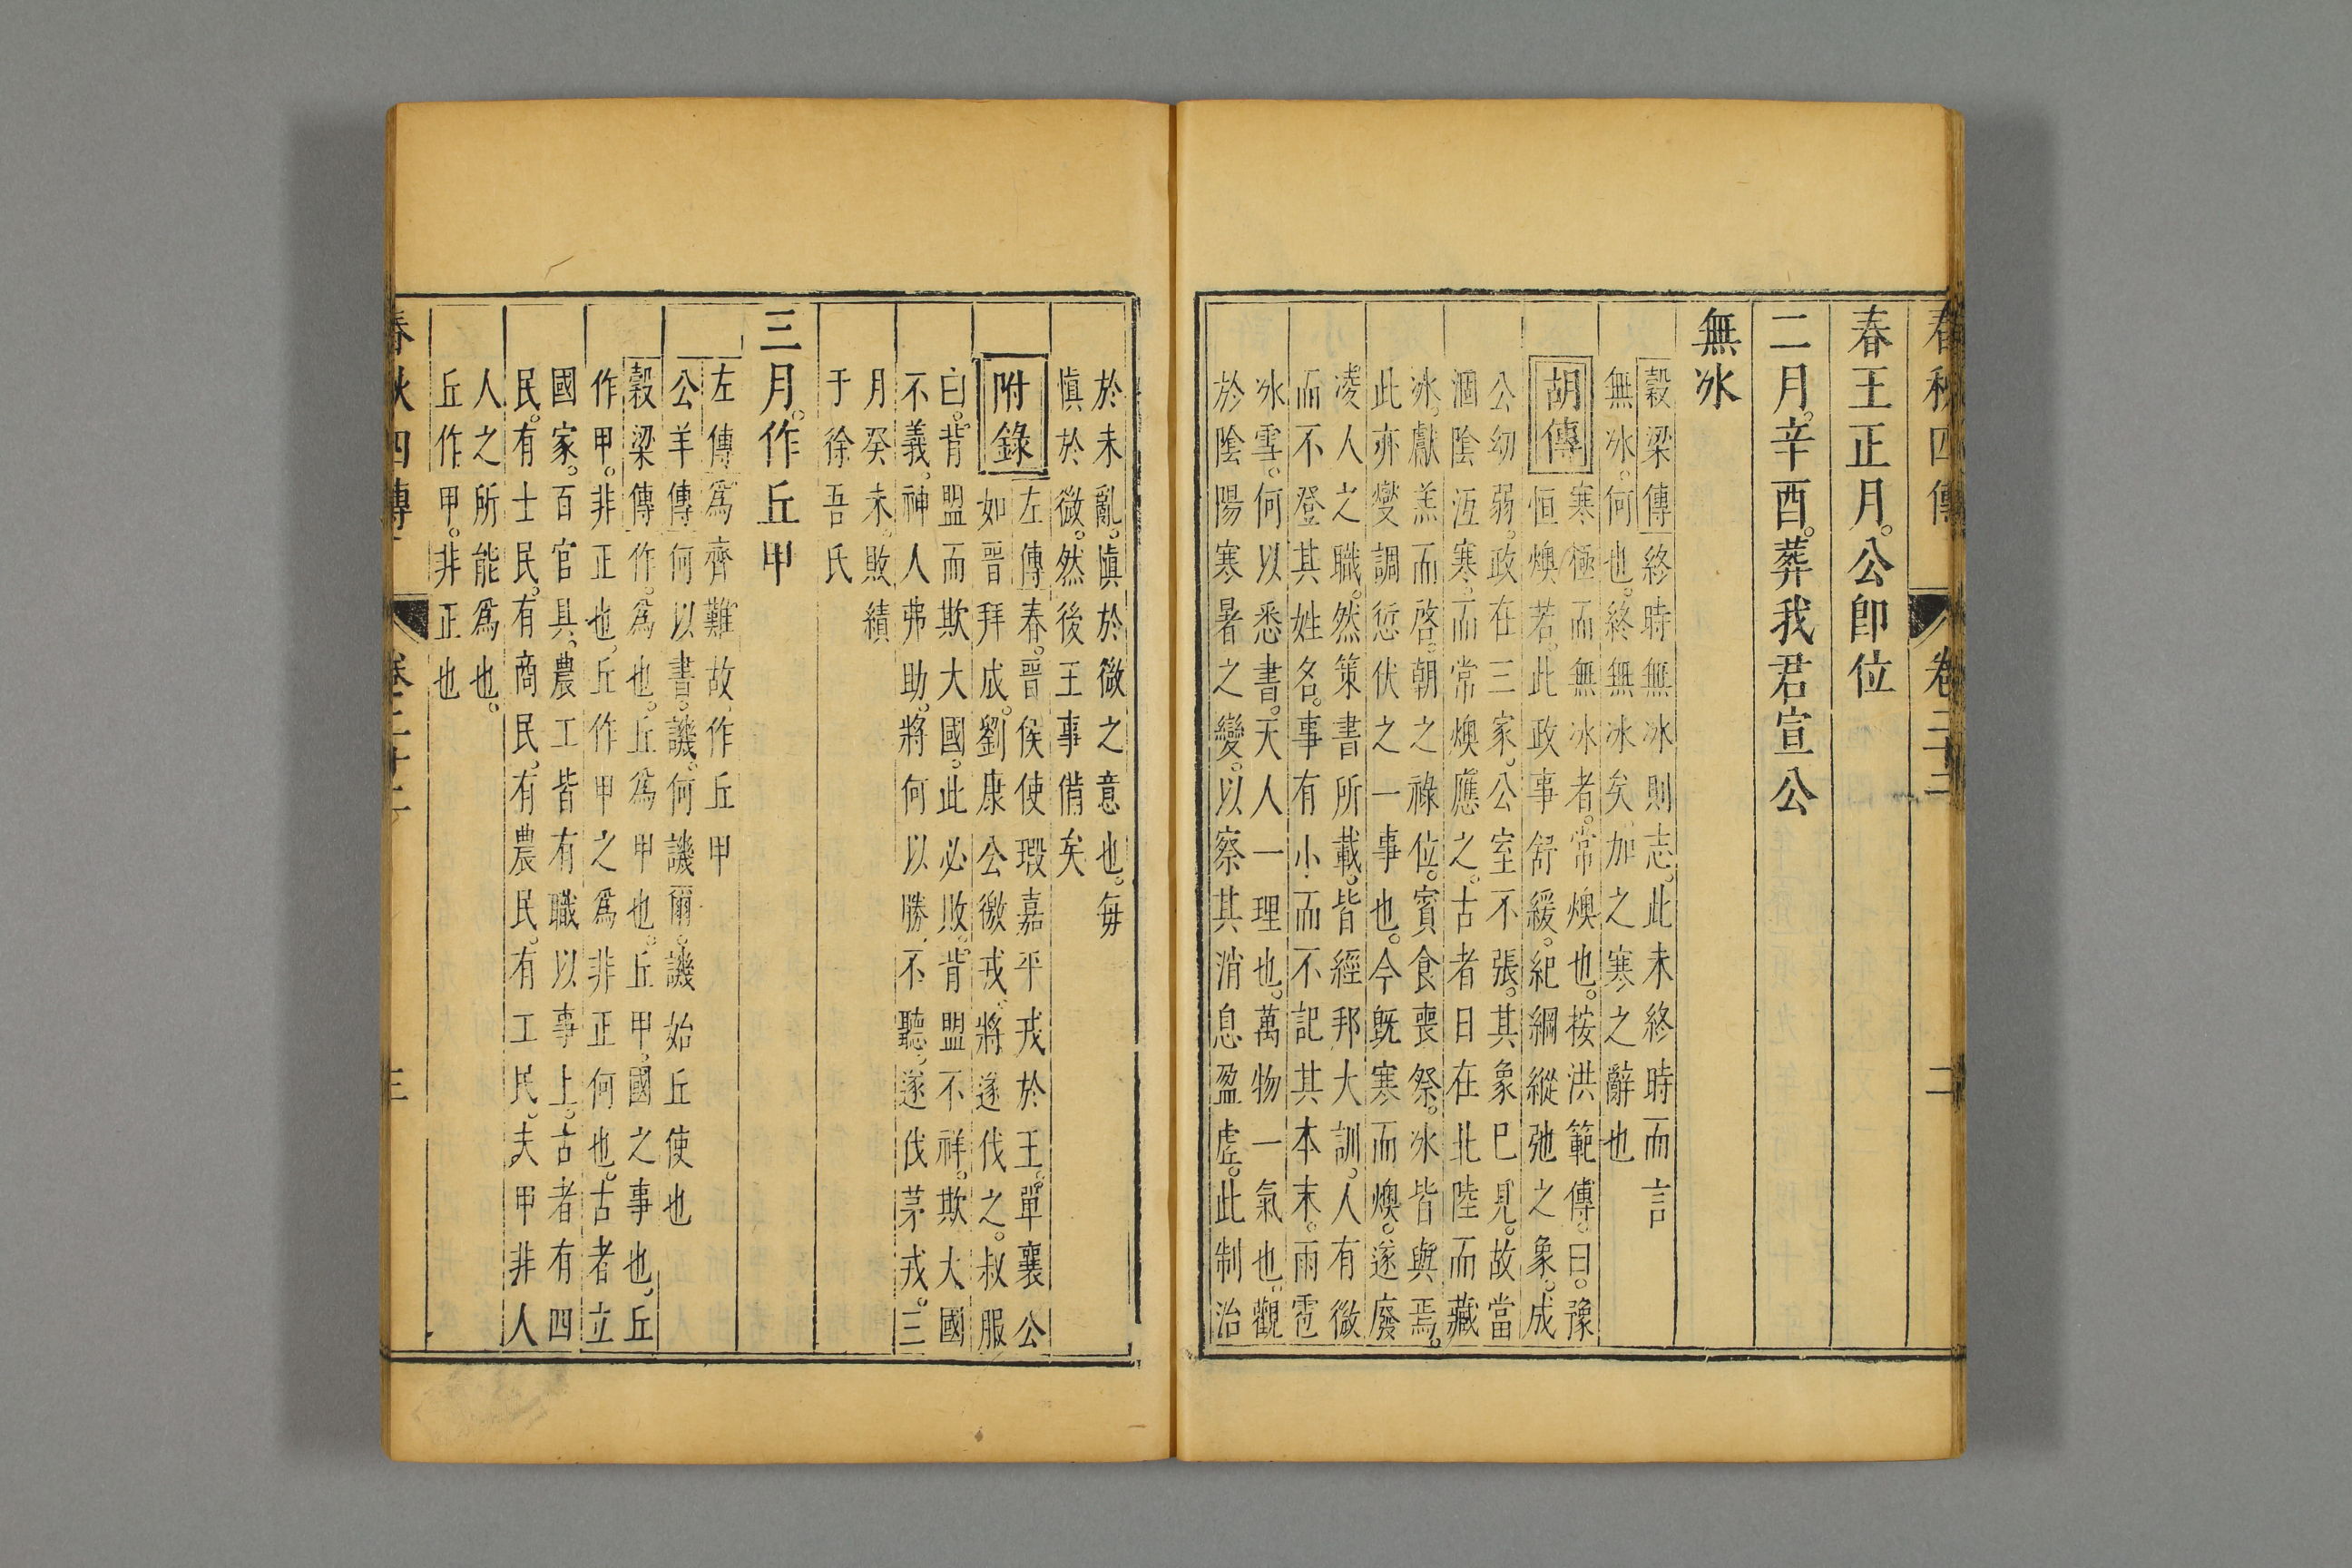 春秋四傳 卷二十三 二
春王正月。公卽位
二月。辛酉。葬我君宣公
無冰
穀梁傳終時無冰則志。此未終時而言
無冰。何也。終無冰矣。加之寒之辭也
胡傳寒極而無冰者。常燠也。按洪範傳。曰。豫
恒燠若。此政事舒緩。紀綱縱弛之象。成
公幼弱。政在三家。公室不張。其象已見。故當
涸陰沍寒。而常燠應之。古者日在北陸而藏
冰。獻羔而啓。朝之祿位。賓食喪祭。冰皆與焉。
此亦燮調愆伏之一事也。今旣寒而燠。遂廢
凌人之職。然策書所載。皆經邦大訓。人有微
而不登其姓名。事有小而不記其本末。雨雹
冰雪。何以悉書。天人一理也。萬物一氣也。觀
於陰陽寒暑之變。以察其消息盈虛。此制治
於未亂。愼於微之意也。每
愼於微。然後王事備矣
附錄左傳春。晉侯使瑕嘉平戎於王。單襄公
如晉拜成。劉康公徼戎。將遂伐之。叔服
曰。背盟而欺大國。此必敗。背盟不祥。欺大國
不義。神人弗助。將何以勝。不聽。遂伐茅戎。三
月癸未。敗績
于徐吾氏
三月。作丘甲
左傳爲齊難故作丘甲
公羊傳何以書。譏。何譏爾。譏始丘使也
穀梁傳作。爲也。丘爲甲也。丘甲。國之事也。丘
作甲。非正也。丘作甲之爲非正何也。古者立
國家。百官具。農工皆有職以事上。古者有四
民。有士民。有商民。有農民。有工民。夫甲非人
人之所能爲也。
丘作甲。非正也
春秋四傳 卷二十三 三